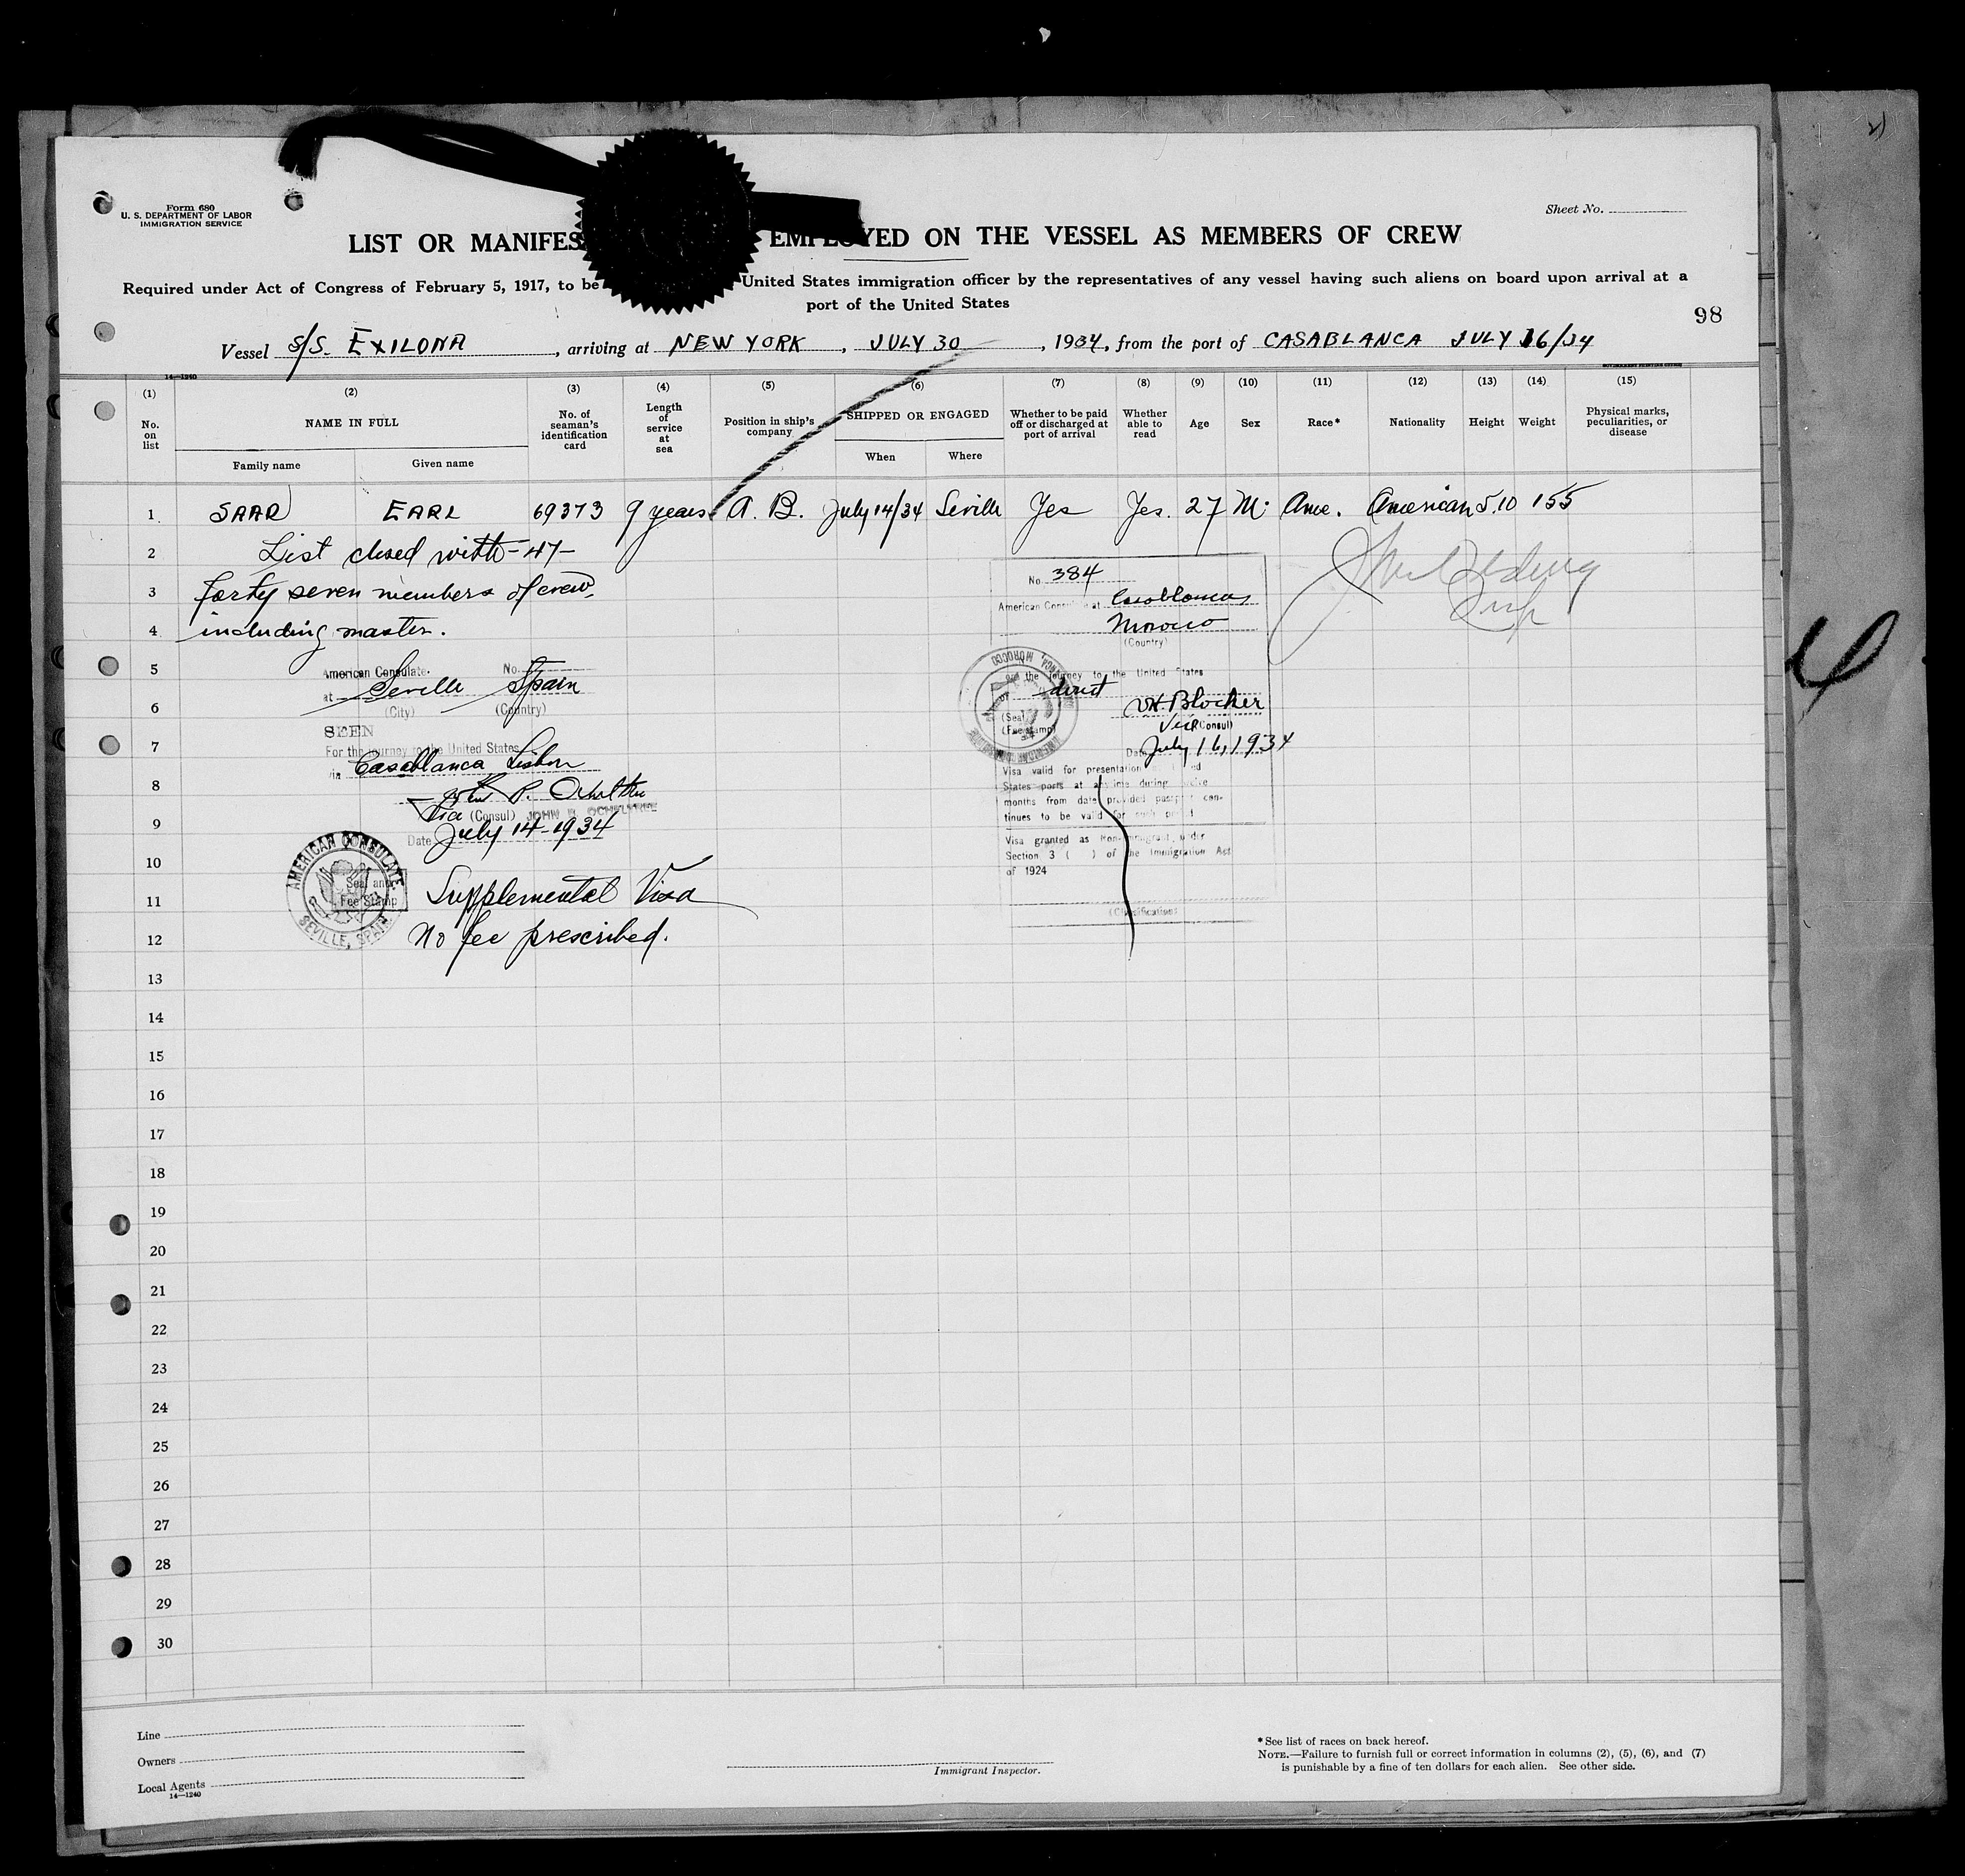 Form 680
U. S. DEPARTMENT OF LABOR
IMMIGRATION SERVICE
Sheet No.
LIST OR MANIFES EMPLOYED ON THE VESSEL AS MEMBERS OF CREW
Required under Act of Congress of February 5, 1917, to be United States immigration officer by the representatives of any vessel having such aliens on board upon arrival at a
port of the United States
98
Vessel S/S. EXILONA, arriving at NEW YORK, JULY 30, 1934, from the port of CASABLANCA JULY 16/34
14—1240
GOVERNMENT PRINTING OFFICE
(1) (2) (3) (4) (5) (6) (7) (8) (9) (10) (11) (12) (13) (14) (15)
No. on list
NAME IN FULL
Family name Given name
No. of seaman's identification card
Length of service at sea
Position in ship's company
SHIPPED OR ENGAGED
When Where
Whether to be paid off or discharged at port of arrival
Whether able to read
Age
Sex
Race*
Nationality
Height
Weight
Physical marks, peculiarities, or disease
1 SAAR EARL 69373 9 years A. B. July 14/34 Seville Yes Yes. 27 M. Ame. American 5.10 155
2 List closed with -47-
3 forty seven members of crew,
4 including master.
No. 384
American Cons at Casablanca
Morocco
(Country)
for the journey to the United States
direct
(Seal
(Fee stamp)
W. H. Blocker
Vice (Consul)
Date July 16, 1934
Visa valid for presentation ed
States ports at anytime during twelve
months from date provided passport con-
tinues to be valid for such period
Visa granted as Non-immigrant, under
Section 3 ( ) of the Immigration Act
of 1924
(Classification)
5 American Consulate. No.
6 at Seville Spain
(City) (Country)
SEEN
7 For the journey to the United States
via Casablanca Lisbon
8 John P. Ocheltree
9 Vice (Consul) JOHN P. OCHELTREE
Date July 14-1934
10
AMERICAN CONSULATE
SEVILLE, SPAIN
Seal and
Fee Stamp
11 Supplemental Visa
12 No fee prescribed.
13
14
15
16
17
18
19
20
21
22
23
24
25
26
27
28
29
30
Line
Owners
Local Agents
14—1240
Immigrant Inspector.
* See list of races on back hereof.
NOTE.—Failure to furnish full or correct information in columns (2), (5), (6), and (7)
is punishable by a fine of ten dollars for each alien. See other side.